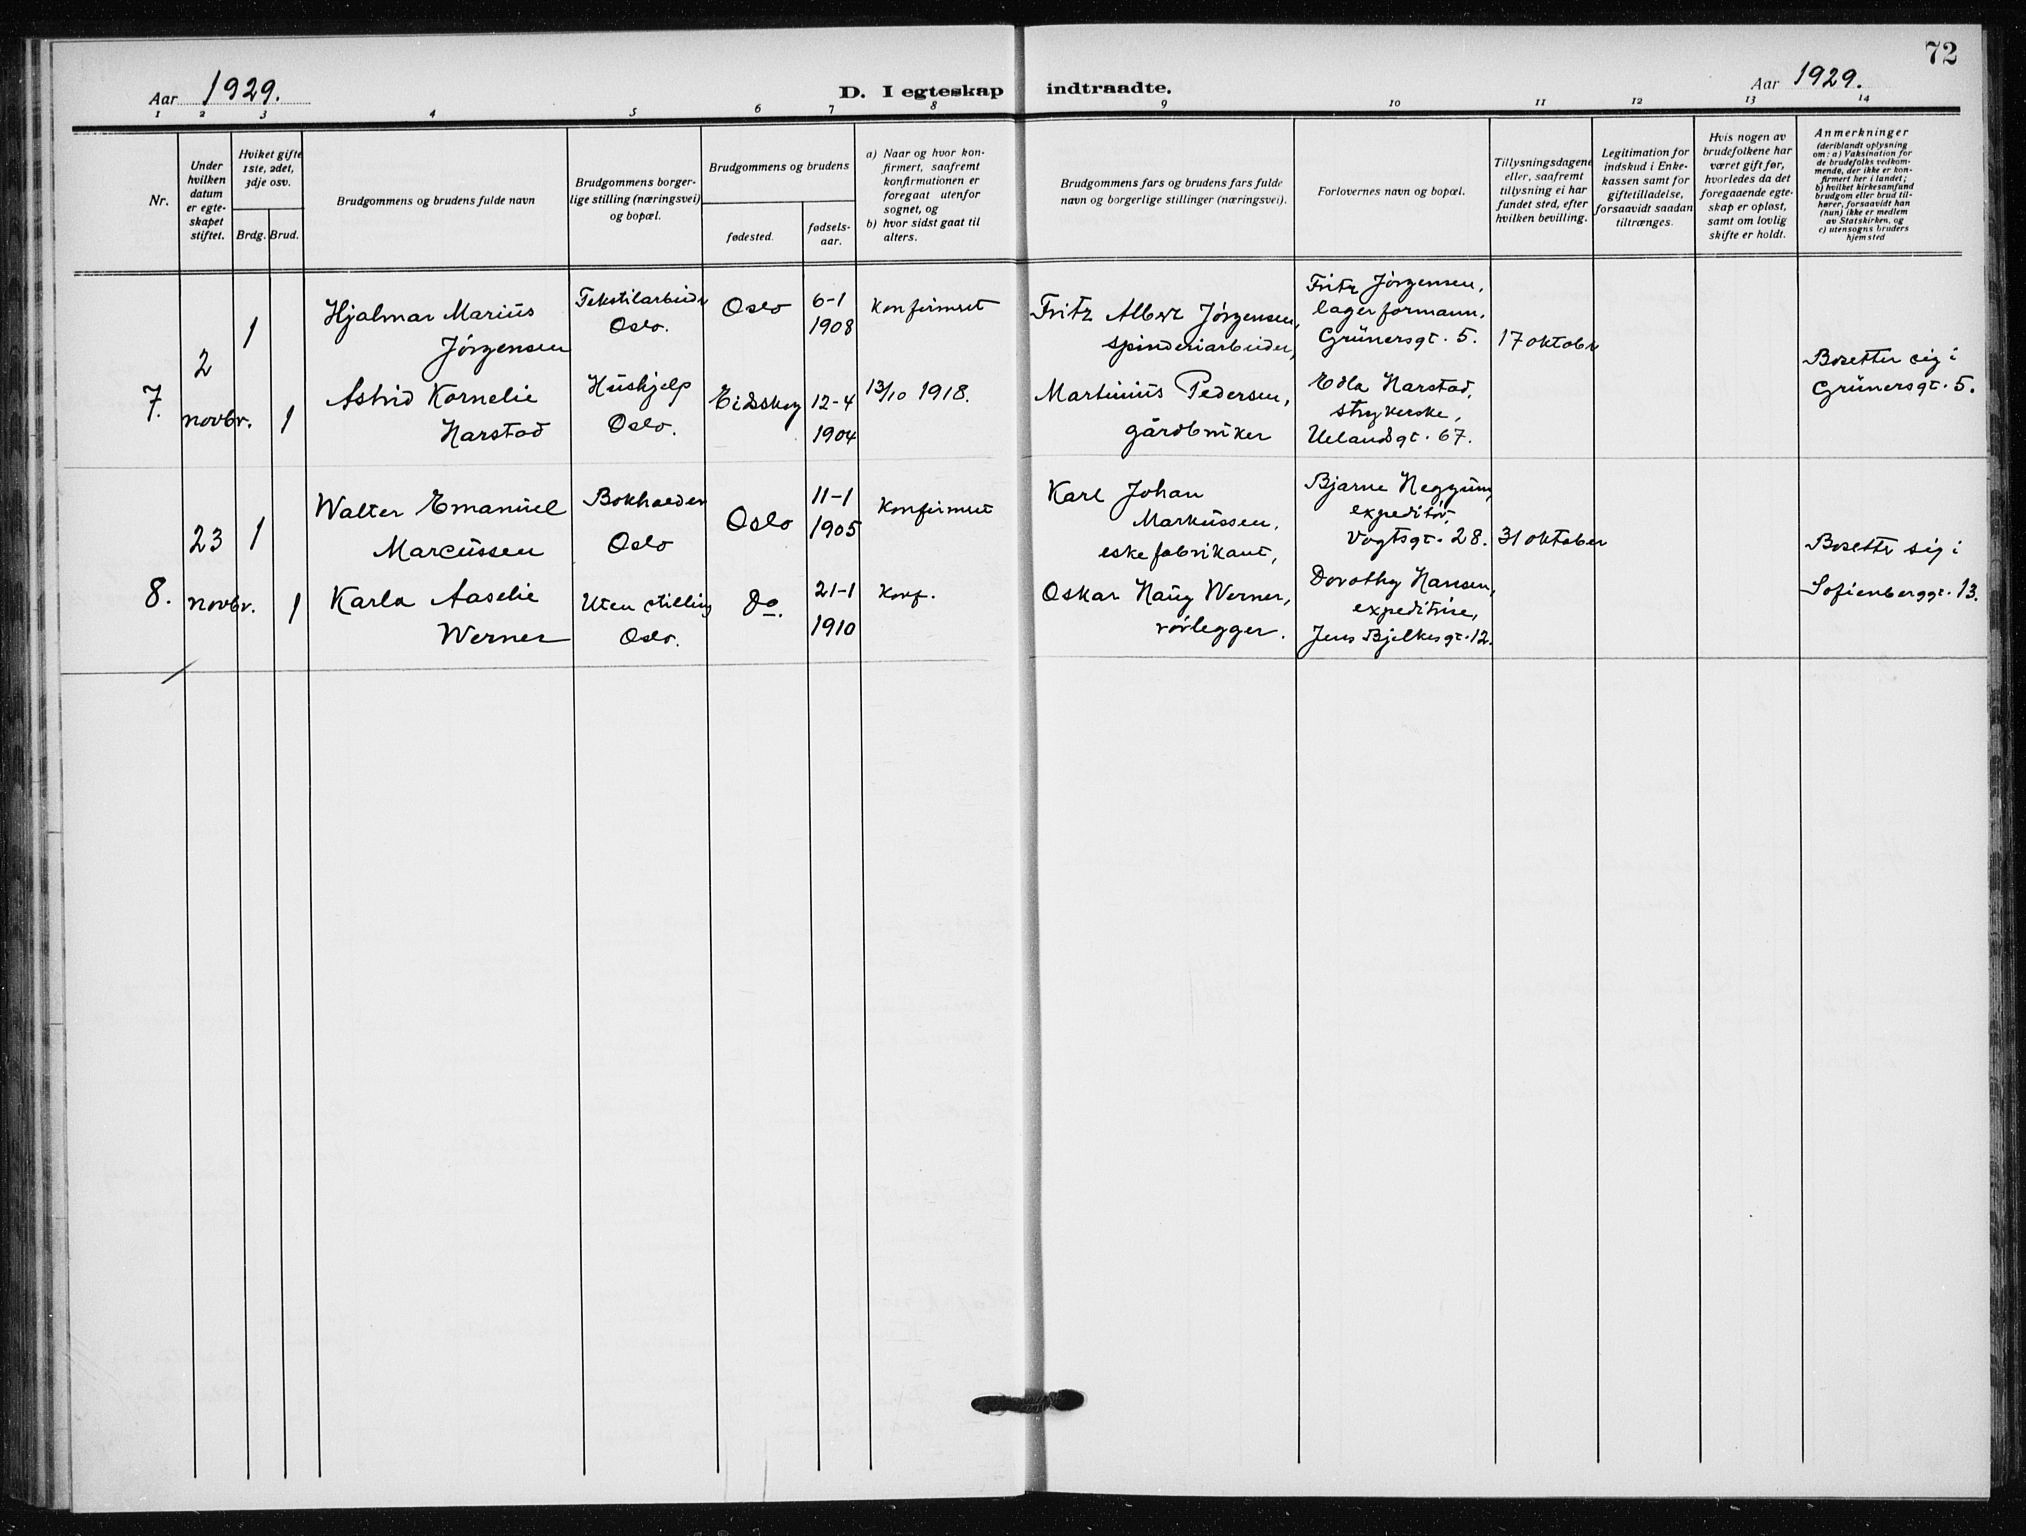 72
Aar 1929.
D. I egteskap indtraadte.
Aar 1929.
1 2 3 4 5 6 7 8 9 10 11 12 13 14
Nr.
Under hvilken datum er egteskapet stiftet.
Hviket gifte 1ste, 2det, 3dje osv.
Brdg. Brud.
Brudgommens og brudens fulde navn
Brudgommens borgerlige stilling (næringsvei) og bopæl.
Brudgommens og brudens
fødested.
fødselsaar.
a) Naar og hvor konfirmert, saafremt konfirmationen er foregaat utenfor sognet, og
b) hvor sidst gaat til alters.
Brudgommens fars og brudens fars fulde navn og borgerlige stillinger (næringsvei).
Forlovernes navn og bopæl.
Tillysningsdagene eller, saafremt tillysning ei har fundet sted, efter hvilken bevilling.
Legitimation for indskud i Enkekassen samt for giftetilladelse, forsaavidt saadan tiltrænges.
Hvis nogen av brudefolkene har været gift før, hvorledes da det foregaaende egteskap er opløst, samt om lovlig skifte er holdt.
Anmerkninger
(deriblandt oplysning om: a) Vaksination for de brudefolks vedkommende, der ikke er konfirmert her i landet;
b) hvilket kirkesamfund brudgom eller brud tilhører, forsaavidt han (hun) ikke er medlem av Statskirken, og
c) utensogns bruders hjemsted
7.
2 novbr.
1
Hjalmar Marius
Jörgensen
Tekstilarbeider
Oslo.
Oslo
6-1
1908
Konfirmert
Fritz Albert Jörgensen,
spinderiarbeider,
Fritz Jörgensen,
lagerformann,
Grünersgt. 5.
17 oktobr
Bosetter sig i
Grünersgt. 5.
1
Astrid Kornelie
Harstad
Hushjelp
Oslo.
Eidskog
12-4
1904
13/10 1918.
Martinius Pedersen,
gårdbruker
Edla Harstad,
strykerske,
Uelandsgt. 67.
8.
23 novbr.
1
Walter Emanuel
Marcussen
Bokholder
Oslo
Oslo
11-1
1905
Konfirmert
Karl Johan
Markussen,
eskefabrikant,
Bjarne Heggum,
expeditör,
Vogtsgt. 28.
31 oktober
Bosetter sig i
Sofienberggt. 13.
1
Karla Aaselie
Werner
Uten stilling
Oslo.
Do.
21-1
1910
Konf.
Oskar Haug Werner,
rörlegger.
Dorothy Hansen,
expeditrise,
Jens Bjelkesgt. 12.